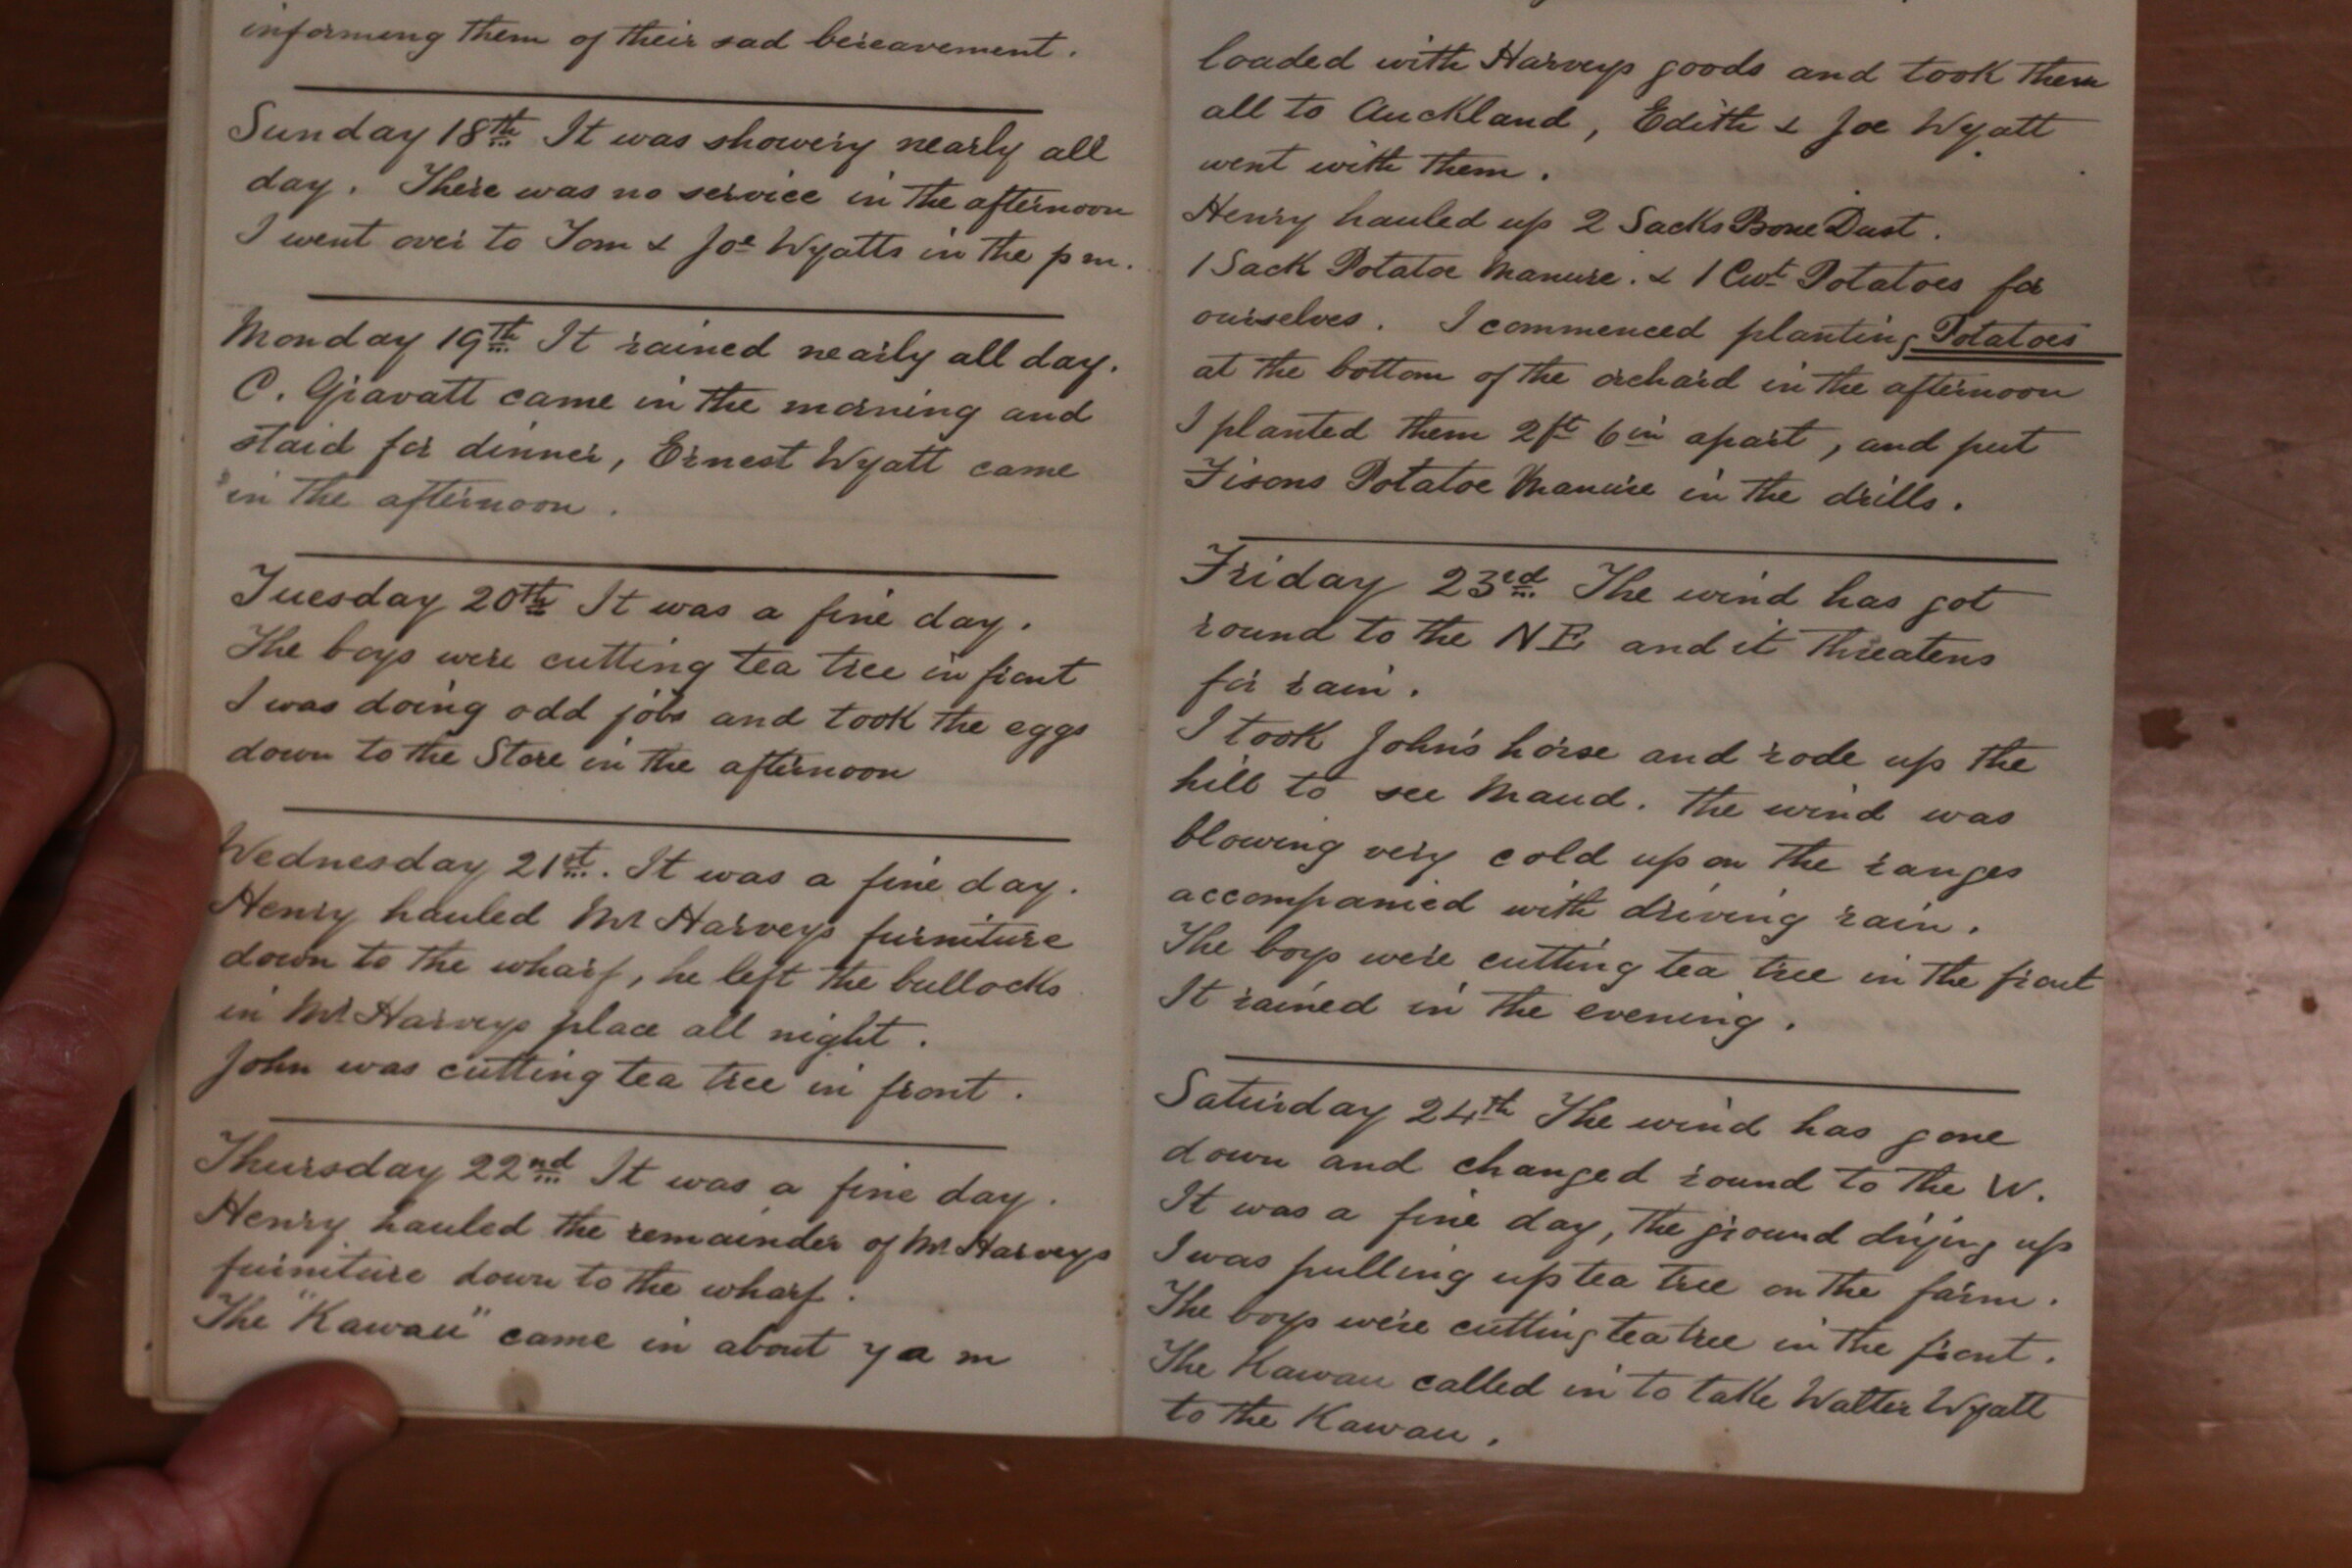 informing them of their sad bereavement.
Sunday 18th It was showery nearly all
day. There was no service in the afternoon
I went over to Tom & Joe Wyatts in the pm.
Monday 19th It rained nearly all day.
C. Gravatt came in the morning and
staid for dinner, Ernest Wyatt came
in the afternoon.
Tuesday 20th It was a fine day.
The boys were cutting tea tree in front
I was doing odd jobs and took the eggs
down to the Store in the afternoon
Wednesday 21st. It was a fine day.
Henry hauled Mr Harveys furniture
down to the wharf, he left the bullocks
in Mr Harveys place all night.
John was cutting tea tree in front.
Thursday 22nd It was a fine day.
Henry hauled the remainder of Mr Harveys
furniture down to the wharf.
The "Kawau" came in about 7 a m
loaded with Harveys goods and took them
all to Auckland, Edith & Joe Wyatt
went with them.
Henry hauled up 2 Sacks Bone Dust.
1 Sack Potatoe Manure. & 1 Cwt Potatoes for
ourselves. I commenced planting Potatoes
at the bottom of the orchard in the afternoon
I planted them 2ft 6in apart, and put
Fisons Potatoe Manure in the drills.
Friday 23rd The wind has got
round to the NE and it threatens
for rain.
I took John's horse and rode up the
hill to see Maud. The wind was
blowing very cold up on the ranges
accompanied with driving rain.
The boys were cutting tea tree in the front
It rained in the evening.
Saturday 24th The wind has gone
down and changed round to the W.
It was a fine day, the ground drying up
I was pulling up tea tree on the farm.
The boys were cutting tea tree in the front.
The Kawau called in to take Walter Wyatt
to the Kawau.